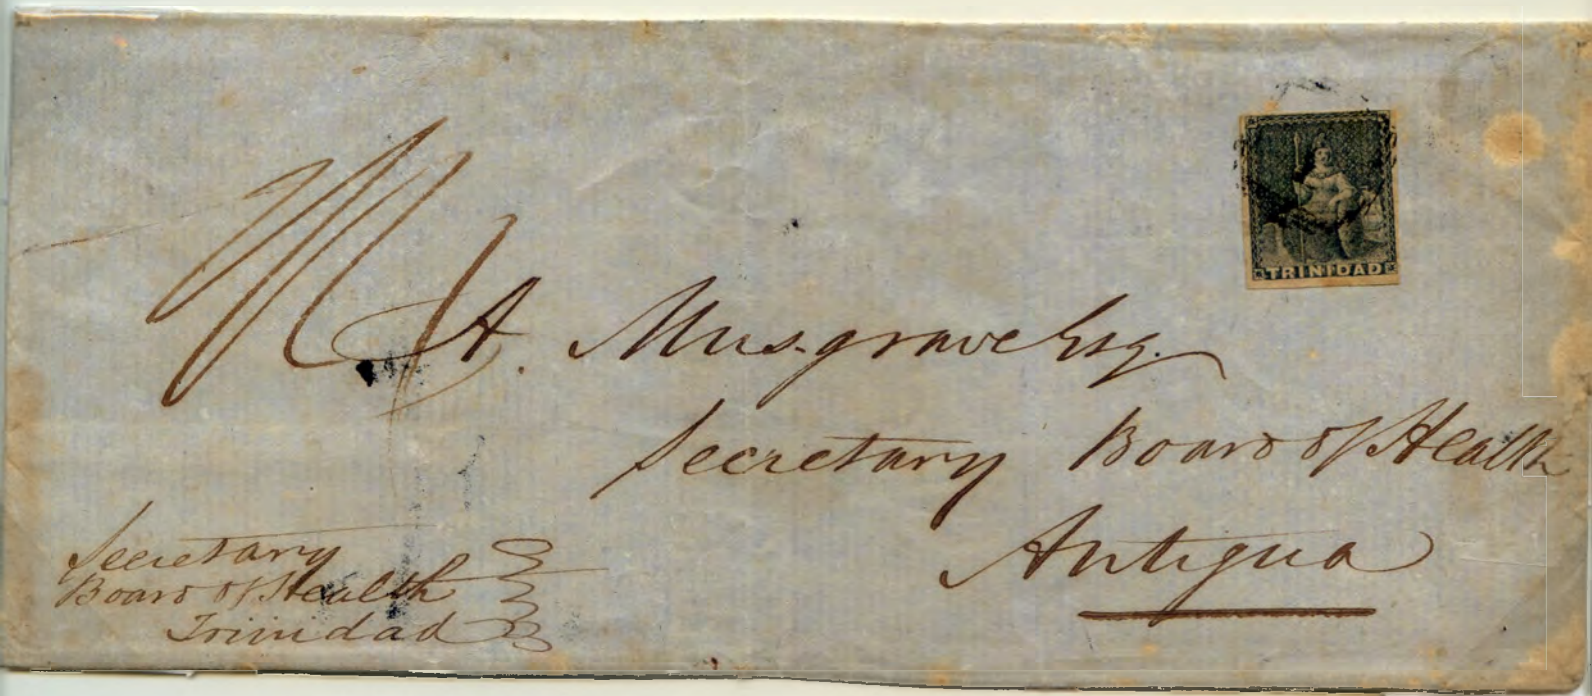 TRINIDAD
A. Musgrave Esq.
Secretary Board of Health
Antigua
Secretary
Board of Health
Trinidad